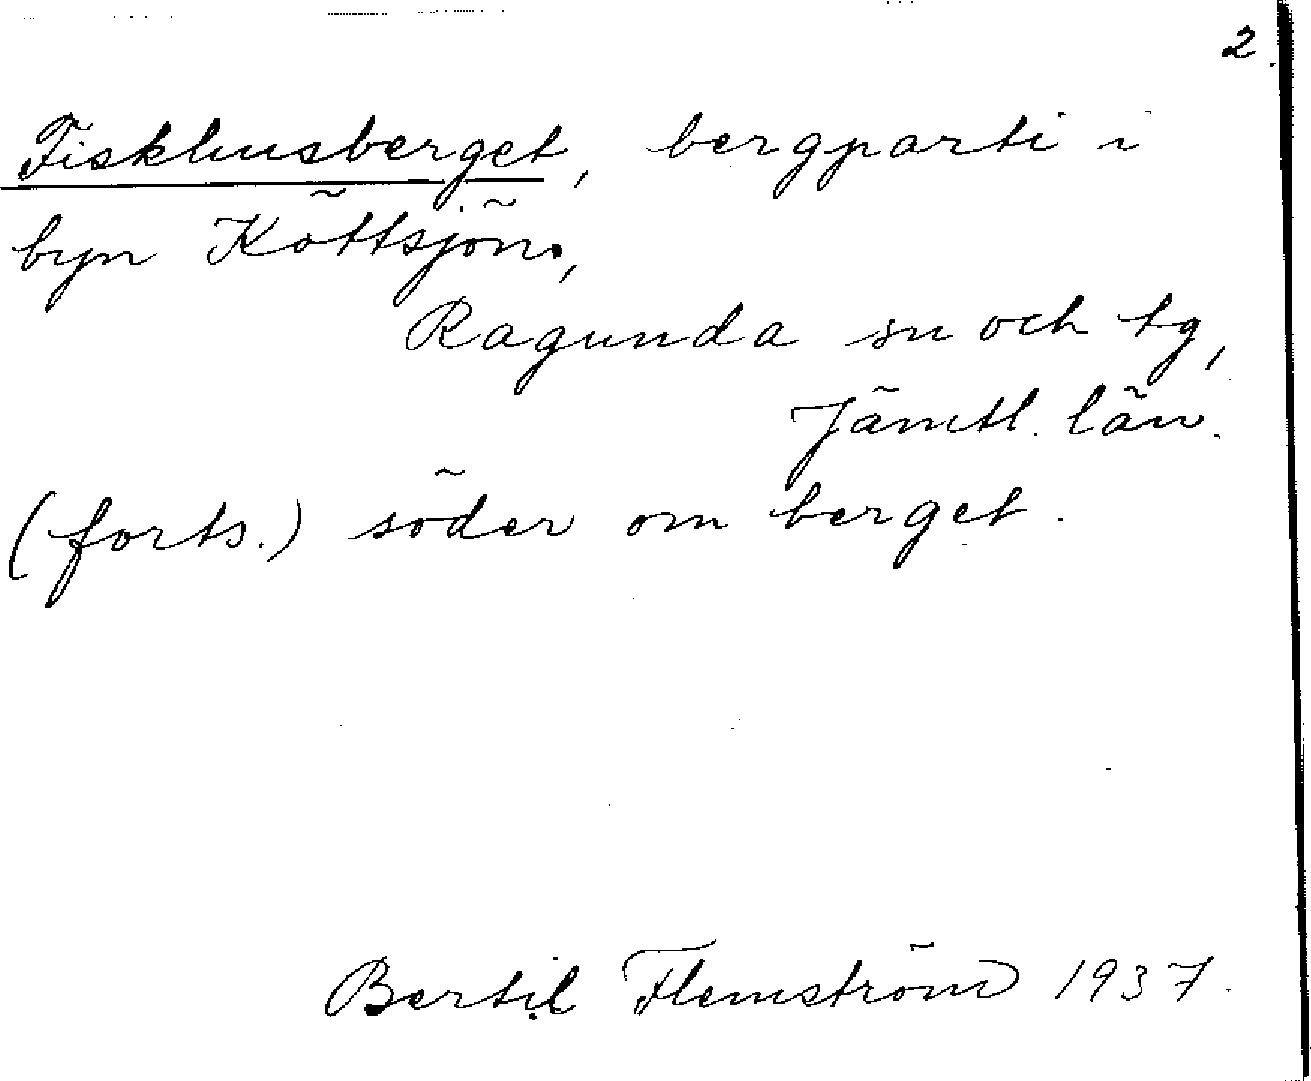 2.
Fiskhusberget, bergparti i
byn Köttsjön,
Ragunda sn och tg,
Jämtl. län.
(forts.) söder om berget.
Bertil Flemström 1937.